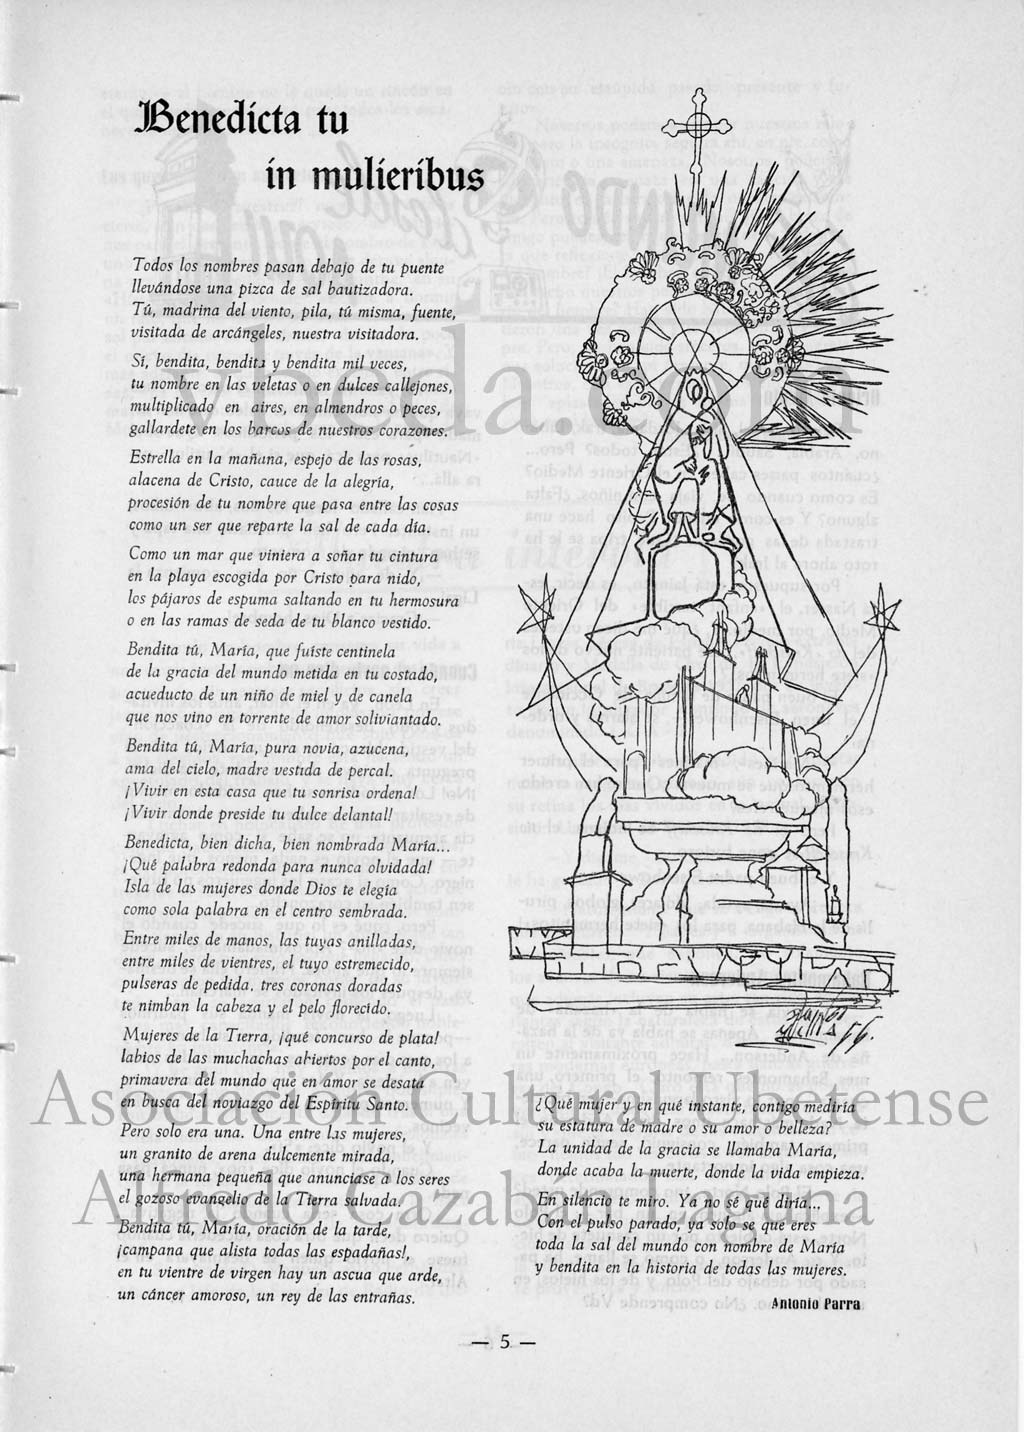 Benedicta tu
in mulieribus
Todos los nombres pasan debajo de tu puente
llevándose una pizca de sal bautizadora.
Tú, madrina del viento, pila, tú misma, fuente,
visitada de arcángeles, nuestra visitadora.
Sí, bendita, bendita y bendita mil veces,
tu nombre en las veletas o en dulces callejones,
multiplicado en aires, en almendros o peces,
gallardete en los barcos de nuestros corazones.
Estrella en la mañana, espejo de las rosas,
alacena de Cristo, cauce de la alegría,
procesión de tu nombre que pasa entre las cosas
como un ser que reparte la sal de cada día.
Como un mar que viniera a soñar tu cintura
en la playa escogida por Cristo para nido,
los pájaros de espuma saltando en tu hermosura
o en las ramas de seda de tu blanco vestido.
Bendita tú, María, que fuiste centinela
de la gracia del mundo metida en tu costado,
acueducto de un niño de miel y de canela
que nos vino en torrente de amor soliviantado.
Bendita tú, María, pura novia, azucena,
ama del cielo, madre vestida de percal.
¡Vivir en esta casa que tu sonrisa ordena!
¡Vivir donde preside tu dulce delantal!
Benedicta, bien dicha, bien nombrada María...
¡Qué palabra redonda para nunca olvidada!
Isla de las mujeres donde Dios te elegía
como sola palabra en el centro sembrada.
Entre miles de manos, las tuyas anilladas,
entre miles de vientres, el tuyo estremecido,
pulseras de pedida, tres coronas doradas
te nimban la cabeza y el pelo florecido.
Mujeres de la Tierra, ¡qué concurso de plata!
labios de las muchachas abiertos por el canto,
primavera del mundo que en amor se desata
en busca del noviazgo del Espíritu Santo.
Pero solo era una. Una entre las mujeres,
un granito de arena dulcemente mirada,
una hermana pequeña que anunciase a los seres
el gozoso evangelio de la Tierra salvada.
Bendita tú, María, oración de la tarde,
¡campana que alista todas las espadañas!,
en tu vientre de virgen hay un ascua que arde,
un cáncer amoroso, un rey de las entrañas.
¿Qué mujer y en qué instante, contigo mediría
su estatura de madre o su amor o belleza?
La unidad de la gracia se llamaba María,
donde acaba la muerte, donde la vida empieza.
En silencio te miro. Ya no sé qué diría...
Con el pulso parado, ya solo se que eres
toda la sal del mundo con nombre de María
y bendita en la historia de todas las mujeres.
Antonio Parra
— 5 —
vbeda.com
Asociación Cultural Ubetense
Alfredo Cazabán Laguna